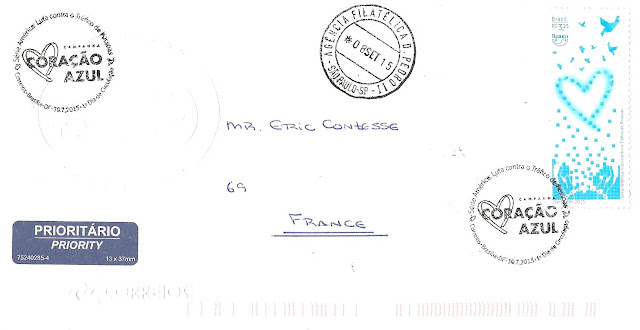 Série América: Luta contra o Tráfico de Pessoas
CAMPANHA
CORAÇÃO
AZUL
Correios-Brasília-DF-30.7.2015-1º Dia de Circulação
AGÊNCIA FILATÉLICA D. PEDRO II
*08SET15
SÃO PAULO-SP
Brasil
R$ 3,25
MR. ERIC CONTESSE
69
FRANCE
Série América: Luta contra o Tráfico de Pessoas
CAMPANHA
CORAÇÃO
AZUL
Correios-Brasília-DF-30.7.2015-1º Dia de Circulação
PRIORITÁRIO
PRIORITY
75240285-4 13 x 37mm
CORREIOS